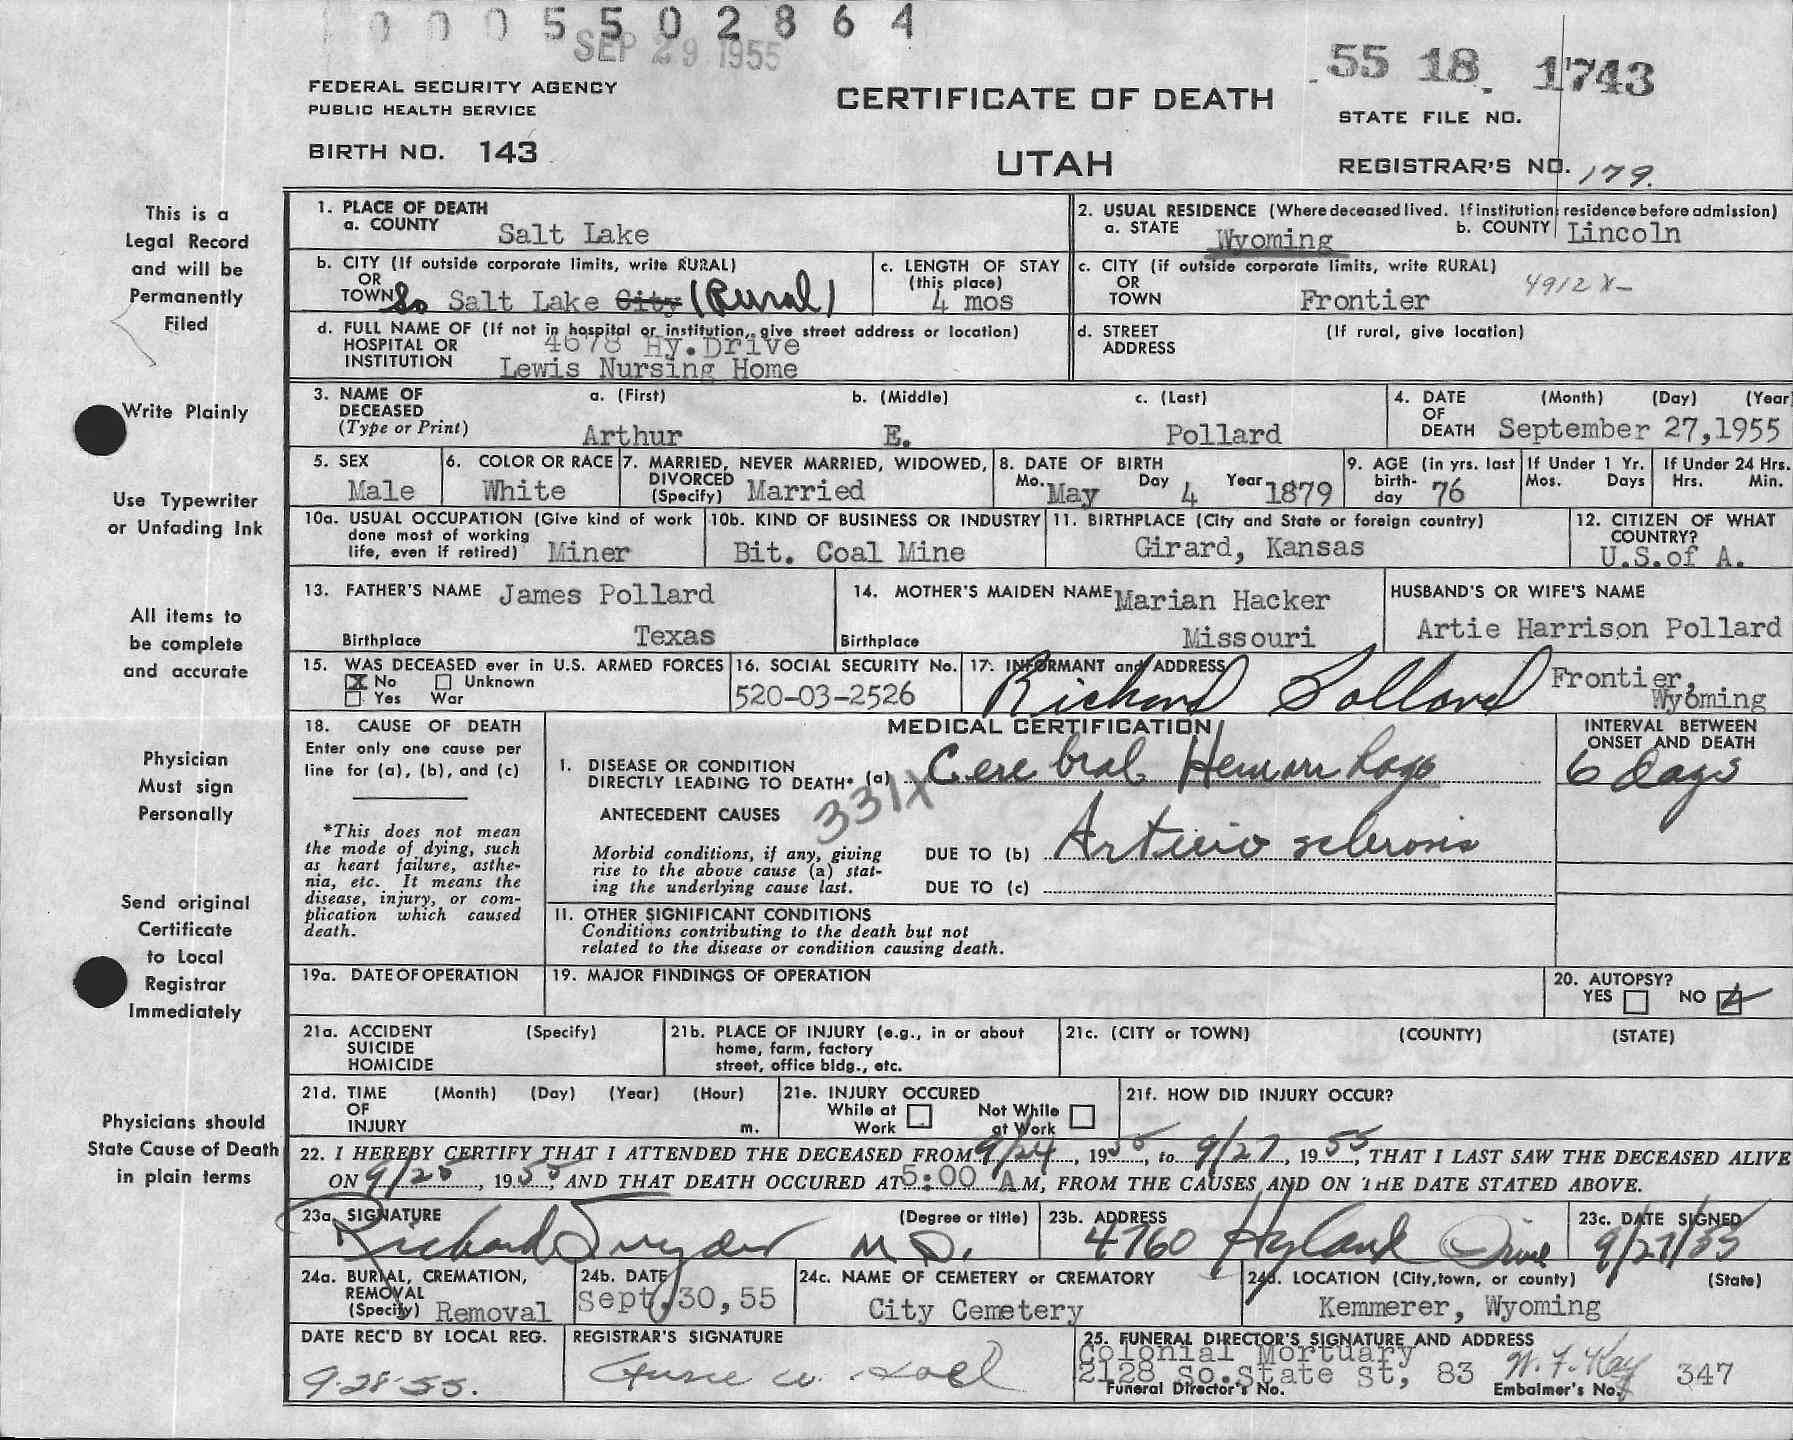 0005502864
SEP 29 1955
55 18 1743
FEDERAL SECURITY AGENCY
PUBLIC HEALTH SERVICE
CERTIFICATE OF DEATH
STATE FILE NO.
BIRTH NO. 143
UTAH
REGISTRAR'S NO. 179.
This is a
Legal Record
and will be
Permanently
Filed
Write Plainly
Use Typewriter
or Unfading Ink
All items to
be complete
and accurate
Physician
Must sign
Personally
Send original
Certificate
to Local
Registrar
Immediately
Physicians should
State Cause of Death
in plain terms
1. PLACE OF DEATH
a. COUNTY Salt Lake
2. USUAL RESIDENCE (Where deceased lived. If institution: residence before admission)
a. STATE Wyoming b. COUNTY Lincoln
b. CITY (If outside corporate limits, write RURAL)
OR
TOWN So Salt Lake City (Rural)
c. LENGTH OF STAY
(this place)
4 mos
c. CITY (if outside corporate limits, write RURAL)
OR
TOWN Frontier
4912 X-
d. FULL NAME OF (If not in hospital or institution, give street address or location)
HOSPITAL OR
INSTITUTION
4678 Hy.Drive
Lewis Nursing Home
d. STREET (If rural, give location)
ADDRESS
3. NAME OF
DECEASED
(Type or Print)
a. (First) b. (Middle) c. (Last)
Arthur E. Pollard
4. DATE (Month) (Day) (Year
OF
DEATH September 27,1955
5. SEX
Male
6. COLOR OR RACE
White
7. MARRIED, NEVER MARRIED, WIDOWED,
DIVORCED
(Specify) Married
8. DATE OF BIRTH
Mo. May Day 4 Year 1879
9. AGE (in yrs. last
birth-
day 76
If Under 1 Yr.
Mos. Days
If Under 24 Hrs.
Hrs. Min.
10a. USUAL OCCUPATION (Give kind of work
done most of working
life, even if retired) Miner
10b. KIND OF BUSINESS OR INDUSTRY
Bit. Coal Mine
11. BIRTHPLACE (City and State or foreign country)
Girard, Kansas
12. CITIZEN OF WHAT
COUNTRY?
U.S.of A.
13. FATHER'S NAME James Pollard
Birthplace Texas
14. MOTHER'S MAIDEN NAME Marian Hacker
Birthplace Missouri
HUSBAND'S OR WIFE'S NAME
Artie Harrison Pollard
15. WAS DECEASED ever in U.S. ARMED FORCES
X No Unknown
Yes War
16. SOCIAL SECURITY No.
520-03-2526
17. INFORMANT and ADDRESS
Richard Pollard
Frontier,
Wyoming
18. CAUSE OF DEATH
Enter only one cause per
line for (a), (b), and (c)
*This does not mean
the mode of dying, such
as heart failure, asthe-
nia, etc. It means the
disease, injury, or com-
plication which caused
death.
MEDICAL CERTIFICATION
INTERVAL BETWEEN
ONSET AND DEATH
I. DISEASE OR CONDITION
DIRECTLY LEADING TO DEATH* (a) Cerebral Hemorrhage
6 days
331X
ANTECEDENT CAUSES
Morbid conditions, if any, giving
rise to the above cause (a) stat-
ing the underlying cause last.
DUE TO (b) Arterio sclerosis
DUE TO (c)
II. OTHER SIGNIFICANT CONDITIONS
Conditions contributing to the death but not
related to the disease or condition causing death.
19a. DATE OF OPERATION
19. MAJOR FINDINGS OF OPERATION
20. AUTOPSY?
YES NO
21a. ACCIDENT (Specify)
SUICIDE
HOMICIDE
21b. PLACE OF INJURY (e.g., in or about
home, farm, factory
street, office bldg., etc.
21c. (CITY or TOWN) (COUNTY) (STATE)
21d. TIME (Month) (Day) (Year) (Hour)
OF
INJURY m.
21e. INJURY OCCURED
While at Work Not While at Work
21f. HOW DID INJURY OCCUR?
22. I HEREBY CERTIFY THAT I ATTENDED THE DECEASED FROM 9/24, 1955, to 9/27, 1955, THAT I LAST SAW THE DECEASED ALIVE
ON 9/25, 1955, AND THAT DEATH OCCURED AT 5:00 A M, FROM THE CAUSES AND ON THE DATE STATED ABOVE.
23a. SIGNATURE (Degree or title)
Richard Snyder M D.
23b. ADDRESS
4760 Hyland Drive
23c. DATE SIGNED
9/27/55
24a. BURIAL, CREMATION,
REMOVAL
(Specify) Removal
24b. DATE
Sept.30,55
24c. NAME OF CEMETERY or CREMATORY
City Cemetery
24d. LOCATION (City,town, or county) (State)
Kemmerer, Wyoming
DATE REC'D BY LOCAL REG.
9-28-55.
REGISTRAR'S SIGNATURE
25. FUNERAL DIRECTOR'S SIGNATURE AND ADDRESS
Colonial Mortuary
2128 So.State St, 83 W. F. Kay 347
Funeral Director's No. Embalmer's No.